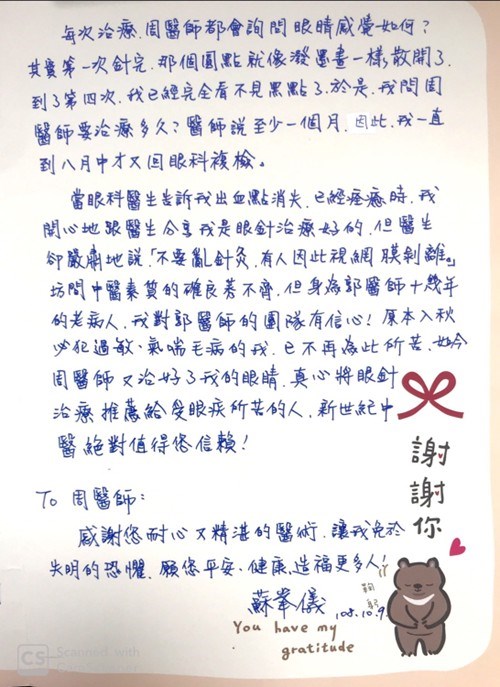 每次治療,周醫師都會詢問眼睛感覺如何?
其實第一次針完,那個圓點就像潑墨畫一樣,散開了.
到了第四次,我已經完全看不見黑點了.於是,我問周
醫師要治療多久?醫師說至少一個月.因此,我一直
到八月中才又回眼科複檢。
當眼科醫生告訴我出血點消失,已經痊癒時,我
開心地跟醫生分享我是眼針治療好的,但醫生
卻嚴肅地說「不要亂針灸,有人因此視網膜剝離」。
坊間中醫素質的確良莠不齊,但身為郭醫師十幾年
的老病人,我對郭醫師的團隊有信心!原本入秋
必犯過敏、氣喘毛病的我,已不再為此所苦,如今
周醫師又治好了我的眼睛,真心將眼針
治療推薦給受眼疾所苦的人,新世紀中
醫絕對值得您信賴!
To 周醫師:
感謝您耐心又精湛的醫術,讓我免於
失明的恐懼.願您平安、健康,造福更多人!
蘇峯儀
鞠躬
108.10.9.
謝謝你
You have my
gratitude
CS Scanned with
CamScanner